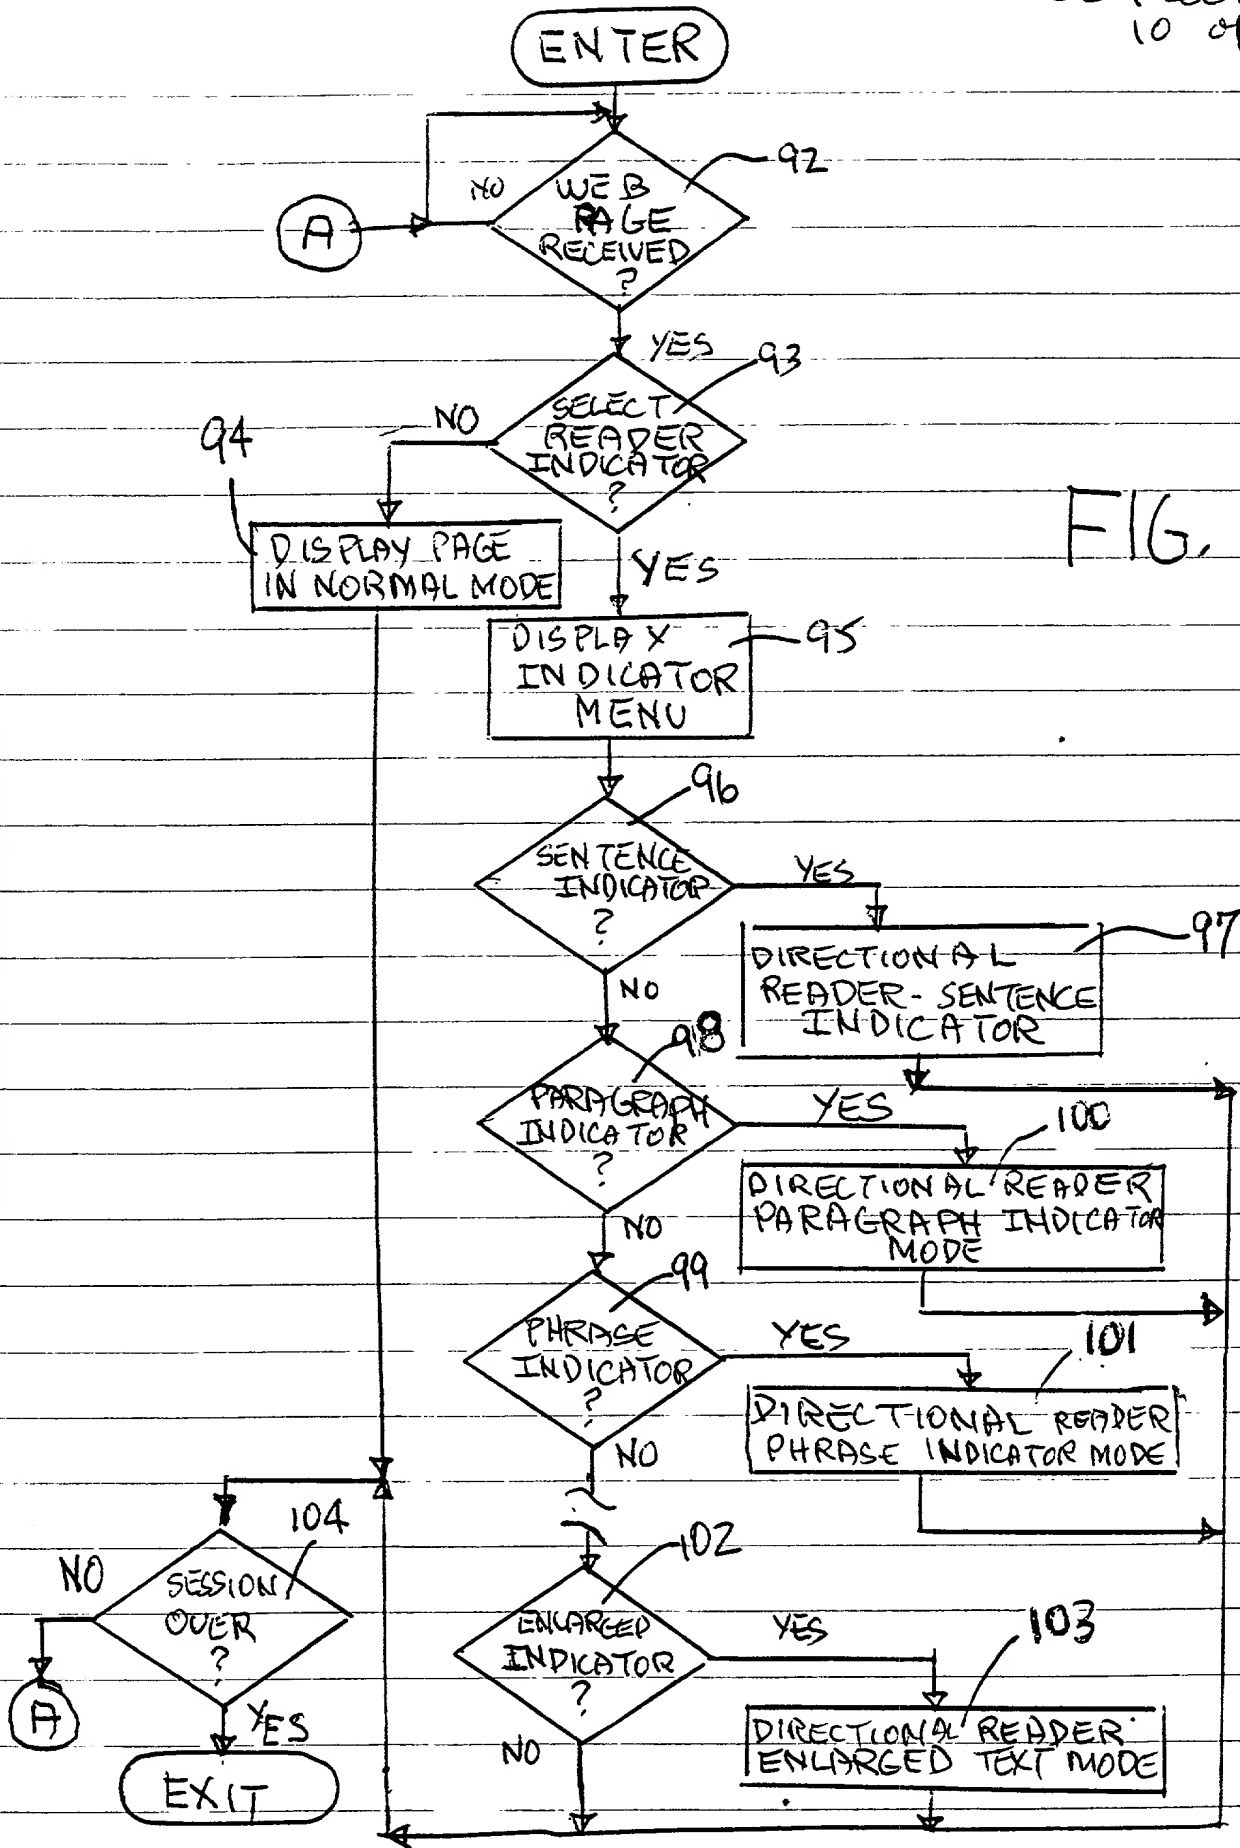 10 of
ENTER
92
NO
WEB
PAGE
RECEIVED
?
A
YES
93
SELECT
READER
INDICATOR
?
NO
94
DISPLAY PAGE
IN NORMAL MODE
FIG.
YES
DISPLAY
INDICATOR
MENU
95
96
SENTENCE
INDICATOR
?
YES
97
DIRECTIONAL
READER - SENTENCE
INDICATOR
NO
98
PARAGRAPH
INDICATOR
?
YES
100
DIRECTIONAL READER
PARAGRAPH INDICATOR
MODE
NO
99
PHRASE
INDICATOR
?
YES
101
DIRECTIONAL READER
PHRASE INDICATOR MODE
NO
104
NO
SESSION
OVER
?
A
YES
EXIT
102
ENLARGED
INDICATOR
?
YES
103
DIRECTIONAL READER
ENLARGED TEXT MODE
NO